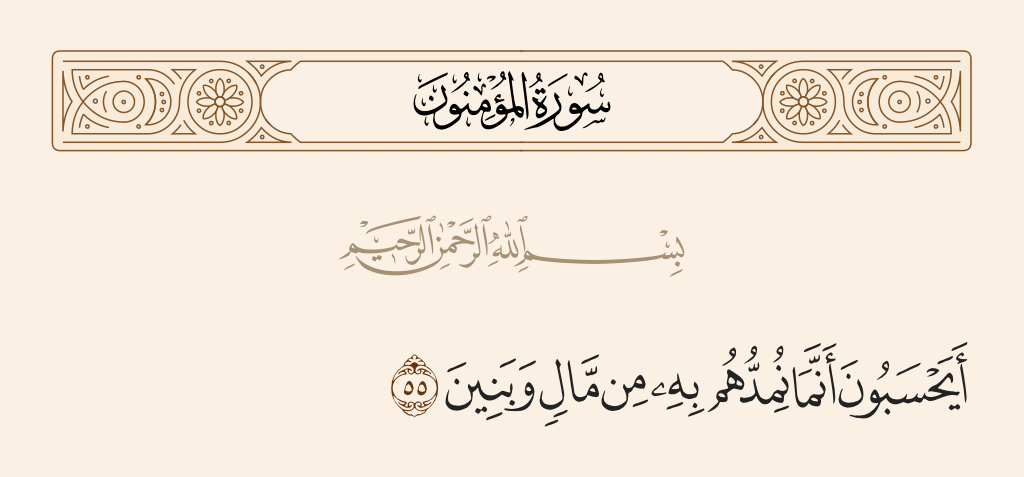 سُورَةُ المُؤْمِنُونَ
بِسْمِ ٱللَّهِ ٱلرَّحْمَٰنِ ٱلرَّحِيمِ
أَيَحْسَبُونَ أَنَّمَا نُمِدُّهُم بِهِۦ مِن مَّالٍ وَبَنِينَ ٥٥